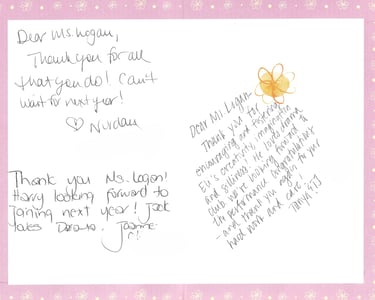 Dear Ms. Logan,
Thank you for all
that you do! Can't
wait for next year!
Thank you Ms. Logan!
Harry looking forward to
joining next year! Jack
loves
Dear Ms. Logan
Thank you for
encouraging and fostering
creativity, imagination
and silliness. He loves drama
club. We're looking forward to
the performance. Congratulations
- and thank you again for your
hard work and care.